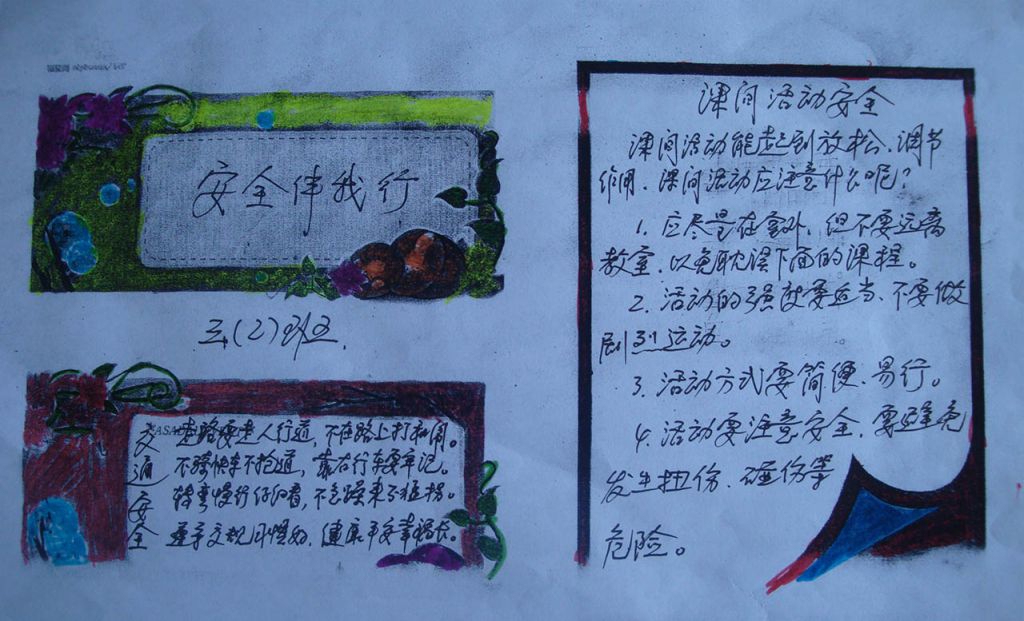 安全伴我行
三(2)班.
交通安全
走路要走人行道,不在路上打和闹。
不骑快车不抢道,靠右行车要牢记。
转弯慢行仔细看,不急躁来不猛拐。
遵守交规习惯好,健康平安幸福长。
课间活动安全
课间活动能起到放松、调节
作用、课间活动应注意什么呢?
1. 应尽量在室外,但不要远离
教室,以免耽误下面的课程。
2. 活动的强度要适当、不要做
剧列运动。
3. 活动方式要简便、易行。
4. 活动要注意安全、要避免
发生扭伤、碰伤等
危险。